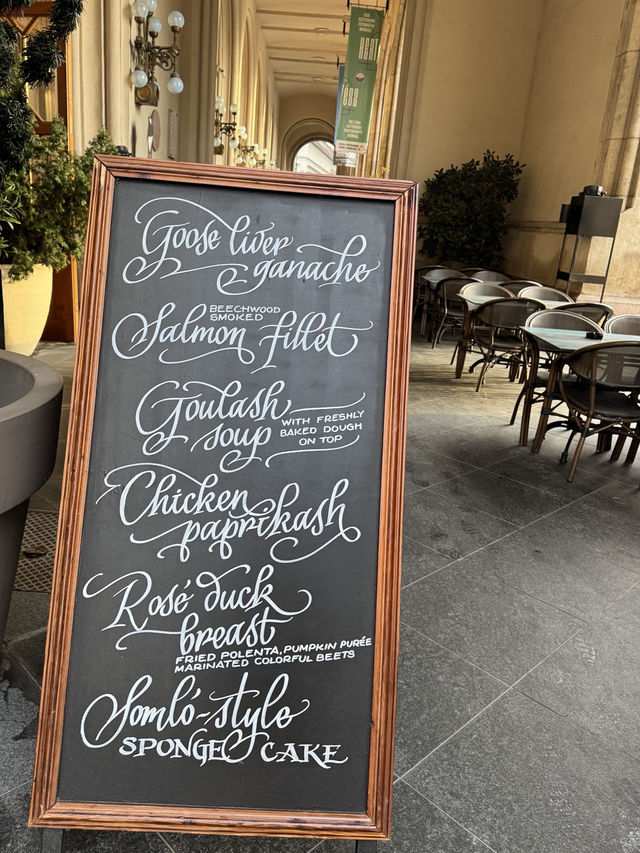 Goose liver
ganache
BEECHWOOD
SMOKED
Salmon fillet
Goulash
soup
WITH FRESHLY
BAKED DOUGH
ON TOP
Chicken
paprikash
Rosé duck
breast
FRIED POLENTA, PUMPKIN PURÉE
MARINATED COLORFUL BEETS
Somló-style
SPONGE CAKE